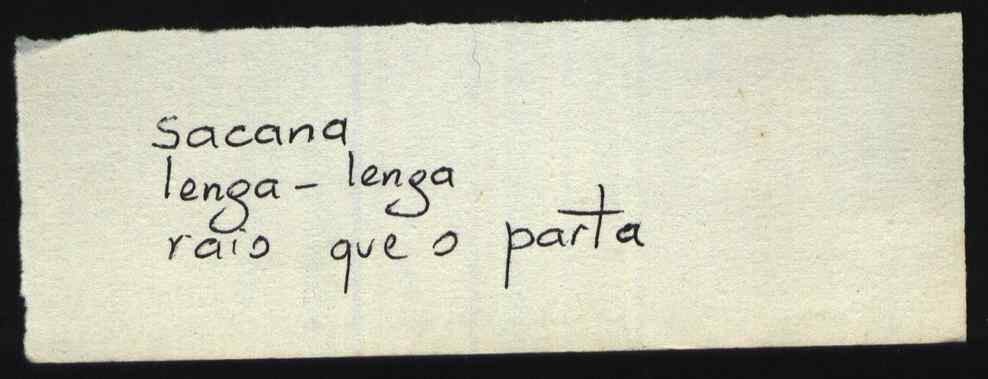 Sacana
lenga - lenga
raio que o parta